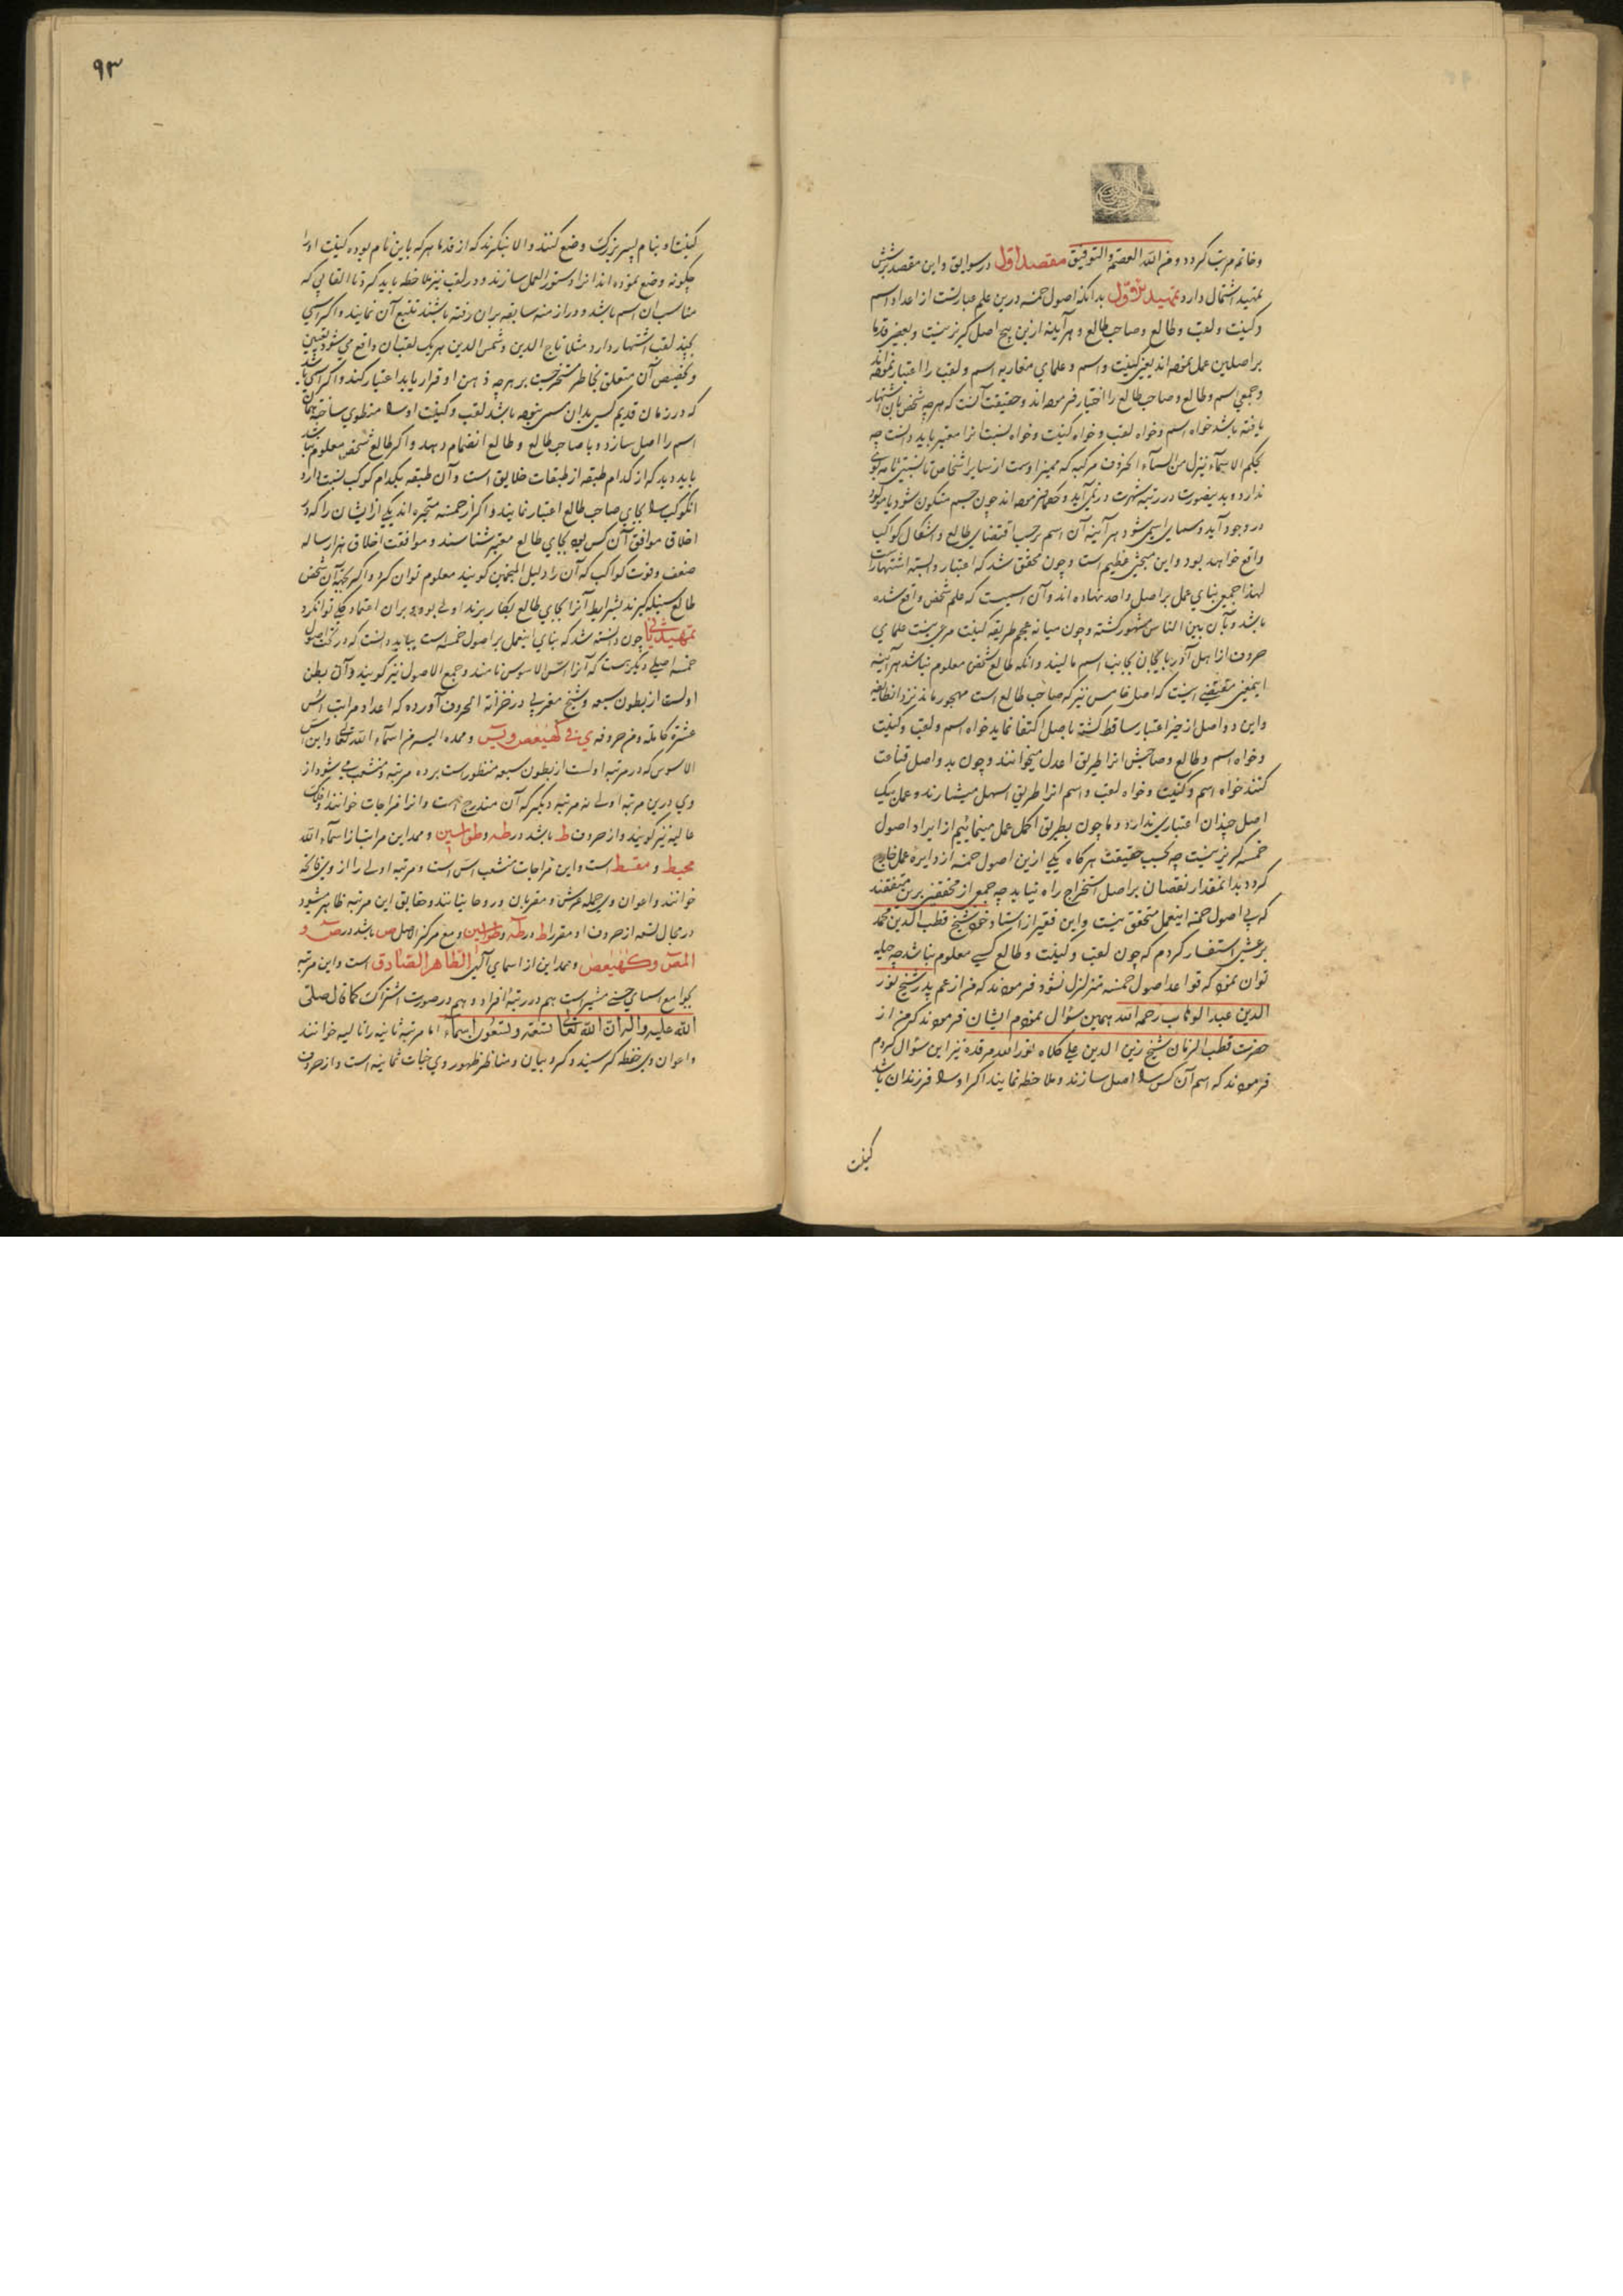 وخاتم مرتب کردد ومن الله العصمة والتوفیق مقصد اول در سوابق واین مقصد بر شش
تمهید اشتمال دارد تمهید اول بدانکه اصول خمسه درین علم عبارتست از اعداد اسم
وکنیت ولقب وطالع وصاحب طالع وهرآینه ازین پنج اصل کزیر نیست وبعضی قدما
بر اصلین عمل نموده اند یعنی کنیت واسم وعلمای مغاربه اسم ولقب را اعتبار نموده اند
وجمعی اسم وطالع وصاحب طالع را اختیار فرموده اند وحقیقت آنست که بهرچه شخص بآن اشتهار
یافته باشد خواه اسم وخواه لقب وخواه کنیت وخواه نسبت انرا معتبر باید دانست چه
بحکم الاسماء تنزل من السماء الحروف مرکبه که ممیز اوست از سایر اشخاص تا نسبتی تامه بوی
ندارد وبدینصورت در رتبه شهرت در نمی آید وحکما فرموده اند چون جسم متکون شود یا مولود
در وجود آید ومسمی باسمی شود هرآینه آن اسم بر حسب اقتضای طالع واشکال کواکب
واقع خواهد بود واین مبحثی عظیم است وچون محقق شد که اعتبار وابسته اشتهارست
لهذا جمعی بنای عمل بر اصل واحد نهاده اند وآن اسمیست که علم شخص واقع شده
باشد وبآن بین الناس مشهور کشته وچون میانه عجم طریقه کنیت مرعی نیست علمای
حروف از اهل آذربایجان بجانب اسم مایلند وانکه طالع شخص معلوم نباشد هرآینه
اینمعنی مقتضی اینست که اصل خامس نیز که صاحب طالع است مهجور ماند نزد انطایفه
واین دو اصل از حیز اعتبار ساقط کشته باصل اکتفا نماید خواه اسم ولقب وکنیت
وخواه اسم وطالع وصاحبش انرا طریق اعدل میخوانند وچون بدو اصل قناعت
کنند خواه اسم وکنیت وخواه لقب واسم انرا طریق اسهل میشمارند وعمل بیک
اصل چندان اعتباری ندارد وما چون بطریق اکمل عمل مینمائیم از ایراد اصول
خمسه کزیر نیست چه بحسب حقیقت هرکاه یکی ازین اصول خمسه از دایره عمل خارج
کردد بدانمقدار نقصان بر اصل استخراج راه نیابد چه جمعی از محققین برین متفقند
که بی اصول خمسه اینعمل متحقق نیست واین فقیر از استاد خود شیخ قطب الدین محمد
برعشی استفسار کردم که چون لقب وکنیت وطالع کسی معلوم نباشد چه حیله
توان نمود که قواعد اصول خمسه متزلزل نشود فرمودند که من از عم پدر شیخ نور
الدین عبد الوهاب رحمه الله همین سؤال نمودم ایشان فرمودند که من از
حضرت قطب الزمان شیخ زین الدین علی کلاه نور الله مرقده نیز این سؤال کردم
فرمودند که اسم آن کس را اصل سازند وملاحظه نمایند اکر اورا فرزندان باشد
کنیت
۹۳
کنیت او بنام پسر بزرکت وضع کنند والا بنکرند که از قدما هرکه باین نام بوده کنیت اورا
چکونه وضع نموده اند انرا دستور العمل سازند ودر لقب نیز ملاحظه باید کرد تا القابی که
مناسب آن اسم باشد ودر ازمنه سابقه بران رفته باشند تتبع آن نمایند واکر اسمی
بچند لقب اشتهار دارد مثلا تاج الدین وشمس الدین هریک لقب آن واقع می شود تعیین
وتخصیص آن متعلق بخاطر مستخرجست بر هرچه ذهن او قرار یابد اعتبار کند واکر اسمی باشد
که در زمان قدیم کسی بدان مسمی نبوده باشد لقب وکنیت اورا منطوی ساخته همان
اسم را اصل سازد وبا صاحب طالع وطالع انضمام دهد واکر طالع شخص معلوم نباشد
باید دید که از کدام طبقه از طبقات خلایق است وآن طبقه بکدام کوکب نسبت دارد
انکوکب را بجای صاحب طالع اعتبار نمایند واکر از خمسه متحیره اند یکی از ایشان را که در
اخلاق موافق آن کس بود بجای طالع معتبر شناسند وموافقت اخلاق از رساله
ضعف وقوت کواکب که آن را دلیل المنجمین کویند معلوم توان کرد واکر بجهة آن شخص
طالع سنبله کیرند بشرایط آنرا بجای طالع بکار برند اولی بود وبر ان اعتماد کلی توان کرد
تمهید ثانی چون دانسته شد که بنای اینعمل بر اصول خمسه است بباید دانست که در تحت اصول
خمسه اصلی دیکر هست که آنرا اس الاسوس نامند وجمع الاصول نیز کویند وآن بطن
اولست از بطون سبعه وشیخ مغربی در خزانة الحروف آورده که اعداد مراتب اس
عشرة کامله ومن حروفه ی فی کهیعص ویس وممده الیسر من اسماء الله تعالی واین اس
الاسوس که در مرتبه اولست از بطون سبعه منظور است بر ده مرتبه ومنشعب می شود از
وی درین مرتبه اولی نه مرتبه دیکر که آن مندرج است وانرا فراجات خوانند
عالیه نیز کویند واز حروف ط باشد در طه وطواسین وممد این مراتب از اسماء الله
محیط ومقسط است واین فراجات منشعب اس است ومرتبه اولی را از وی فاتحه
خوانند واعوان وی حمله عرش ومقربان وروحانیانند وحقایق این مرتبه ظاهر شود
در مجال تسعه از حروف او مقرر ط در طه وطواسین ومع مرکز الاصل ص باشد در ص و
المص وکهیعص وممد این از اسمای آلهی الظاهر الصادق است واین مرتبه
بجوامع اسمای حسنی مشیر است هم در رتبه افراد وهم در صورت اشتراک کما قال صلی
الله علیه واله ان الله تعالی تسعة وتسعون اسماء اما مرتبه ثانیه را تالیه خوانند
واعوان وی حفظه کرسیند وکروبیان ومناظر ظهور وی جنات ثمانیه است واز حروف